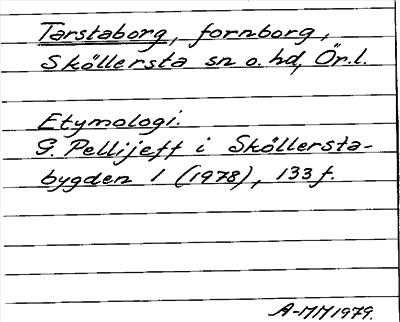 Tarstaborg, fornborg,
Sköllersta sn o. hd, Ör.l.
Etymologi.
G. Pellijeff i Sköllersta-
bygden 1 (1978), 133 f.
A-MM 1979.